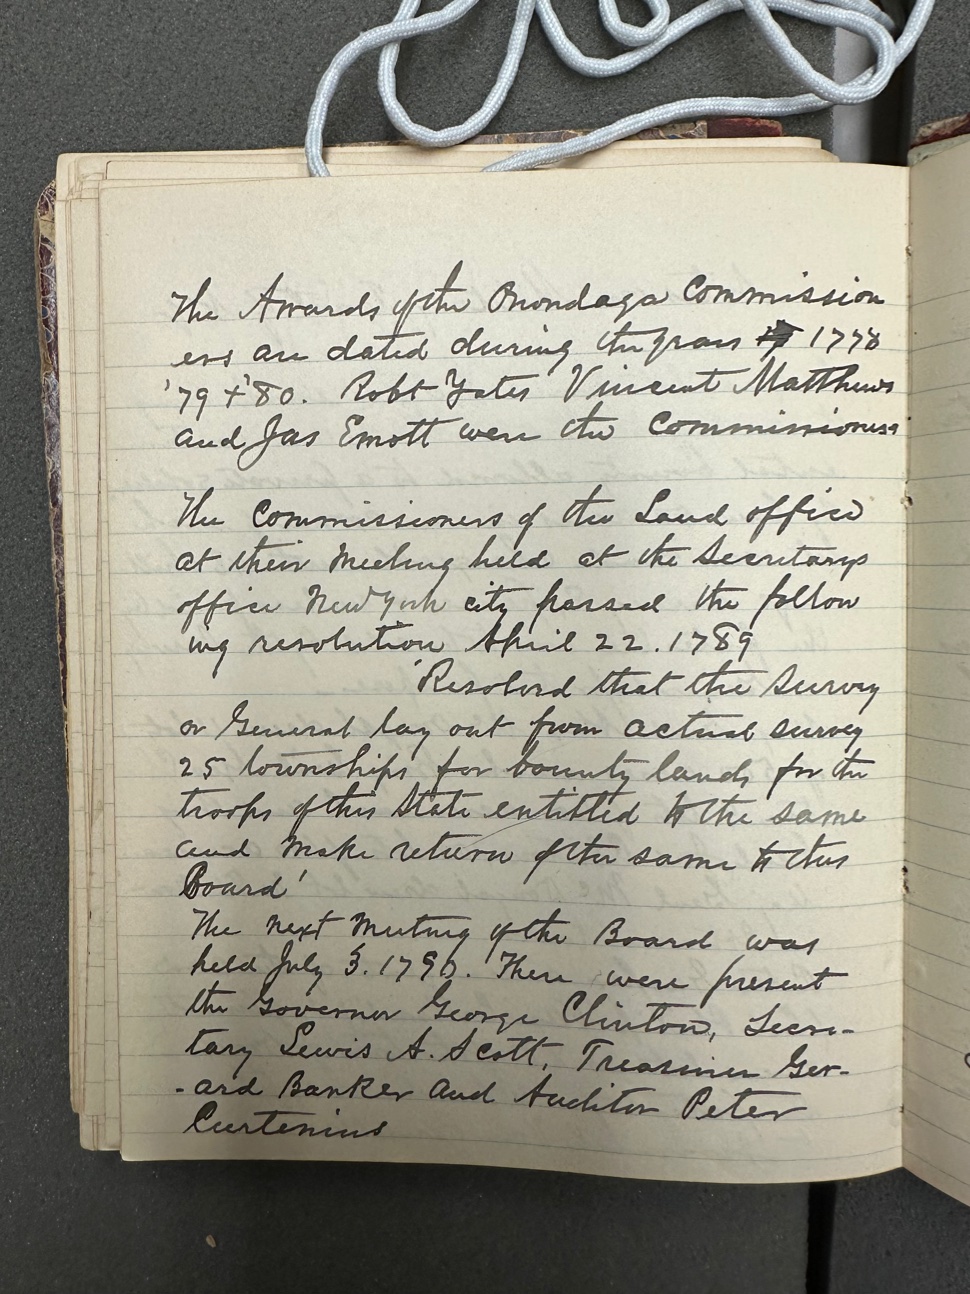 The Awards of the Onondaga Commission
ers are dated during the years 1778
'79 + '80. Robt Yates Vincent Matthews
and Jas Emott were the Commissioners
The Commissioners of the Land office
at their Meeting held at the Secretarys
office New York city passed the follow
ing resolution April 22. 1789
'Resolved that the Survey
or General lay out from actual survey
25 townships for bounty lands for the
troops of this State entitled to the same
and make return of the same to this
Board'
The next Meeting of the Board was
held July 3. 1790. There were present
the Governor George Clinton, Secre-
tary Lewis A. Scott, Treasurer Ger-
-ard Banker and Auditor Peter
Curtenius